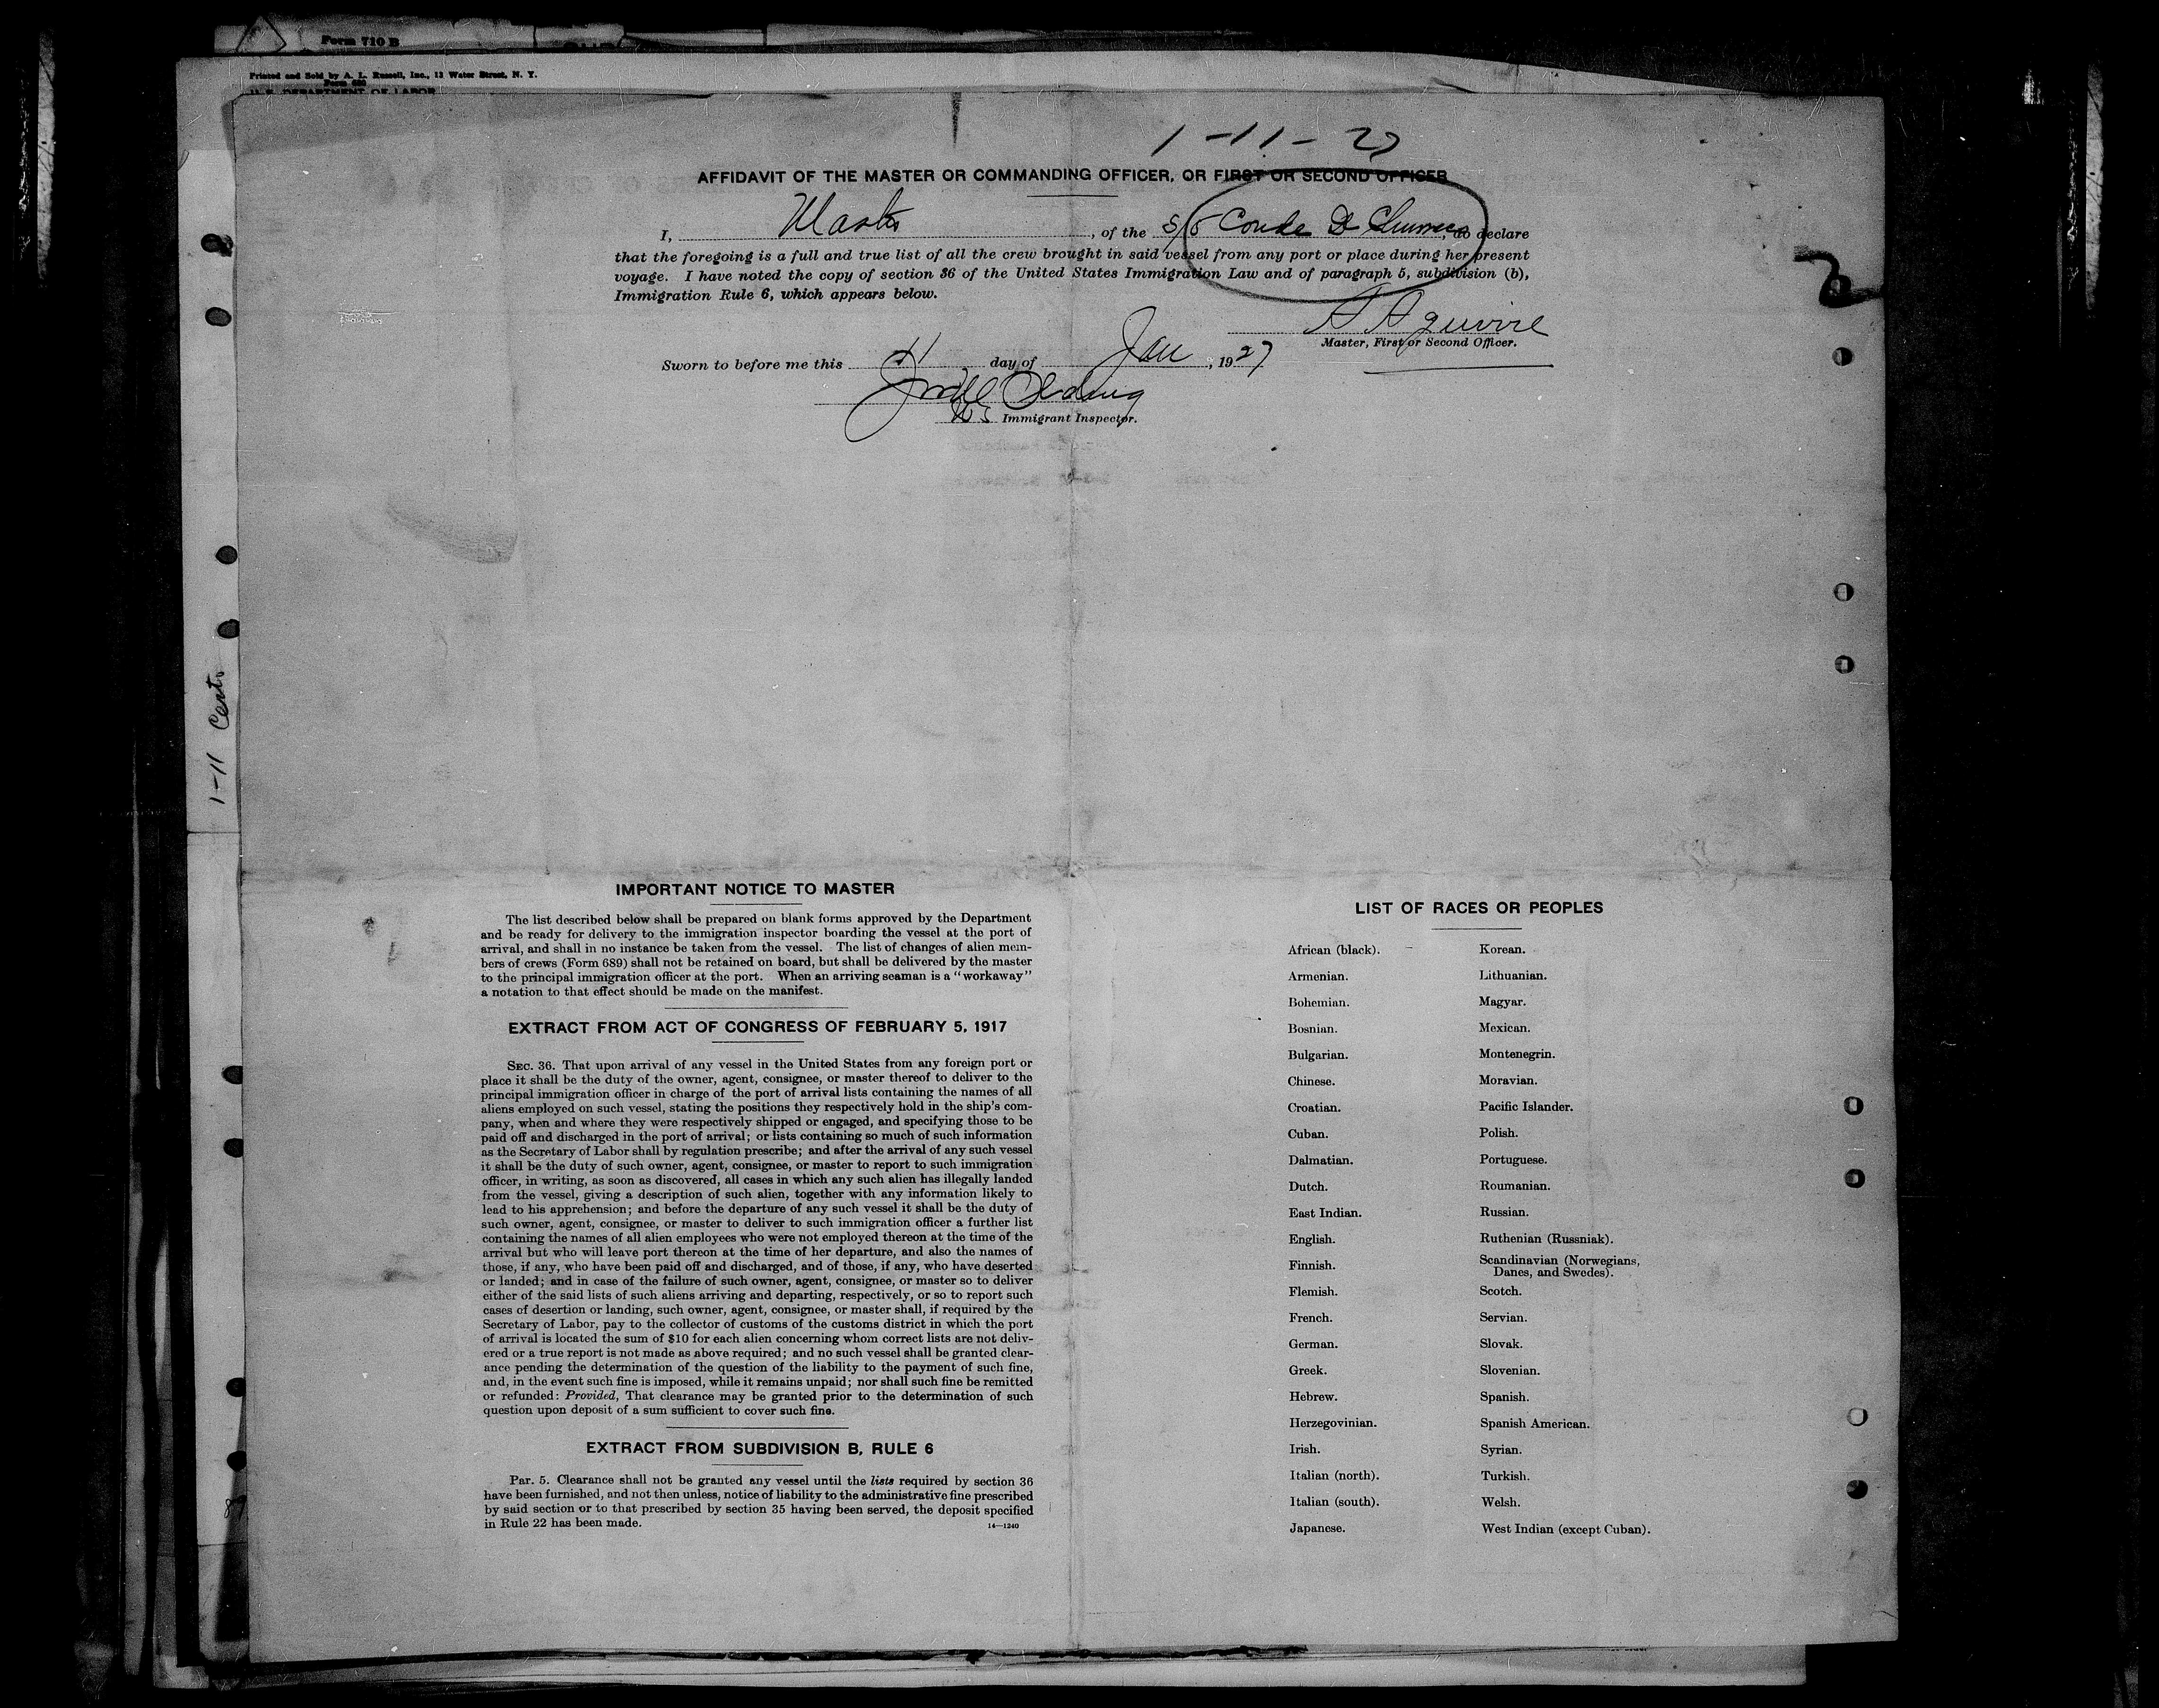 Form 710 B
Printed and Sold by A. L. Russell, Inc., 12 Water Street, N. Y.
Form 680
U. S. DEPARTMENT OF LABOR
1-11-27
AFFIDAVIT OF THE MASTER OR COMMANDING OFFICER, OR FIRST OR SECOND OFFICER
I, Master, of the S/S Conde De, do declare
that the foregoing is a full and true list of all the crew brought in said vessel from any port or place during her present
voyage. I have noted the copy of section 36 of the United States Immigration Law and of paragraph 5, subdivision (b),
Immigration Rule 6, which appears below.
A Aguirre
Master, First or Second Officer.
Sworn to before me this 11 day of Jan, 1927
Immigrant Inspector.
1-11 Cert
IMPORTANT NOTICE TO MASTER
The list described below shall be prepared on blank forms approved by the Department
and be ready for delivery to the immigration inspector boarding the vessel at the port of
arrival, and shall in no instance be taken from the vessel. The list of changes of alien mem-
bers of crews (Form 689) shall not be retained on board, but shall be delivered by the master
to the principal immigration officer at the port. When an arriving seaman is a "workaway"
a notation to that effect should be made on the manifest.
EXTRACT FROM ACT OF CONGRESS OF FEBRUARY 5, 1917
SEC. 36. That upon arrival of any vessel in the United States from any foreign port or
place it shall be the duty of the owner, agent, consignee, or master thereof to deliver to the
principal immigration officer in charge of the port of arrival lists containing the names of all
aliens employed on such vessel, stating the positions they respectively hold in the ship's com-
pany, when and where they were respectively shipped or engaged, and specifying those to be
paid off and discharged in the port of arrival; or lists containing so much of such information
as the Secretary of Labor shall by regulation prescribe; and after the arrival of any such vessel
it shall be the duty of such owner, agent, consignee, or master to report to such immigration
officer, in writing, as soon as discovered, all cases in which any such alien has illegally landed
from the vessel, giving a description of such alien, together with any information likely to
lead to his apprehension; and before the departure of any such vessel it shall be the duty of
such owner, agent, consignee, or master to deliver to such immigration officer a further list
containing the names of all alien employees who were not employed thereon at the time of the
arrival but who will leave port thereon at the time of her departure, and also the names of
those, if any, who have been paid off and discharged, and of those, if any, who have deserted
or landed; and in case of the failure of such owner, agent, consignee, or master so to deliver
either of the said lists of such aliens arriving and departing, respectively, or so to report such
cases of desertion or landing, such owner, agent, consignee, or master shall, if required by the
Secretary of Labor, pay to the collector of customs of the customs district in which the port
of arrival is located the sum of $10 for each alien concerning whom correct lists are not deliv-
ered or a true report is not made as above required; and no such vessel shall be granted clear-
ance pending the determination of the question of the liability to the payment of such fine,
and, in the event such fine is imposed, while it remains unpaid; nor shall such fine be remitted
or refunded: Provided, That clearance may be granted prior to the determination of such
question upon deposit of a sum sufficient to cover such fine.
EXTRACT FROM SUBDIVISION B, RULE 6
Par. 5. Clearance shall not be granted any vessel until the lists required by section 36
have been furnished, and not then unless, notice of liability to the administrative fine prescribed
by said section or to that prescribed by section 35 having been served, the deposit specified
in Rule 22 has been made.
14—1240
LIST OF RACES OR PEOPLES
African (black).
Armenian.
Bohemian.
Bosnian.
Bulgarian.
Chinese.
Croatian.
Cuban.
Dalmatian.
Dutch.
East Indian.
English.
Finnish.
Flemish.
French.
German.
Greek.
Hebrew.
Herzegovinian.
Irish.
Italian (north).
Italian (south).
Japanese.
Korean.
Lithuanian.
Magyar.
Mexican.
Montenegrin.
Moravian.
Pacific Islander.
Polish.
Portuguese.
Roumanian.
Russian.
Ruthenian (Russniak).
Scandinavian (Norwegians,
Danes, and Swedes).
Scotch.
Servian.
Slovak.
Slovenian.
Spanish.
Spanish American.
Syrian.
Turkish.
Welsh.
West Indian (except Cuban).